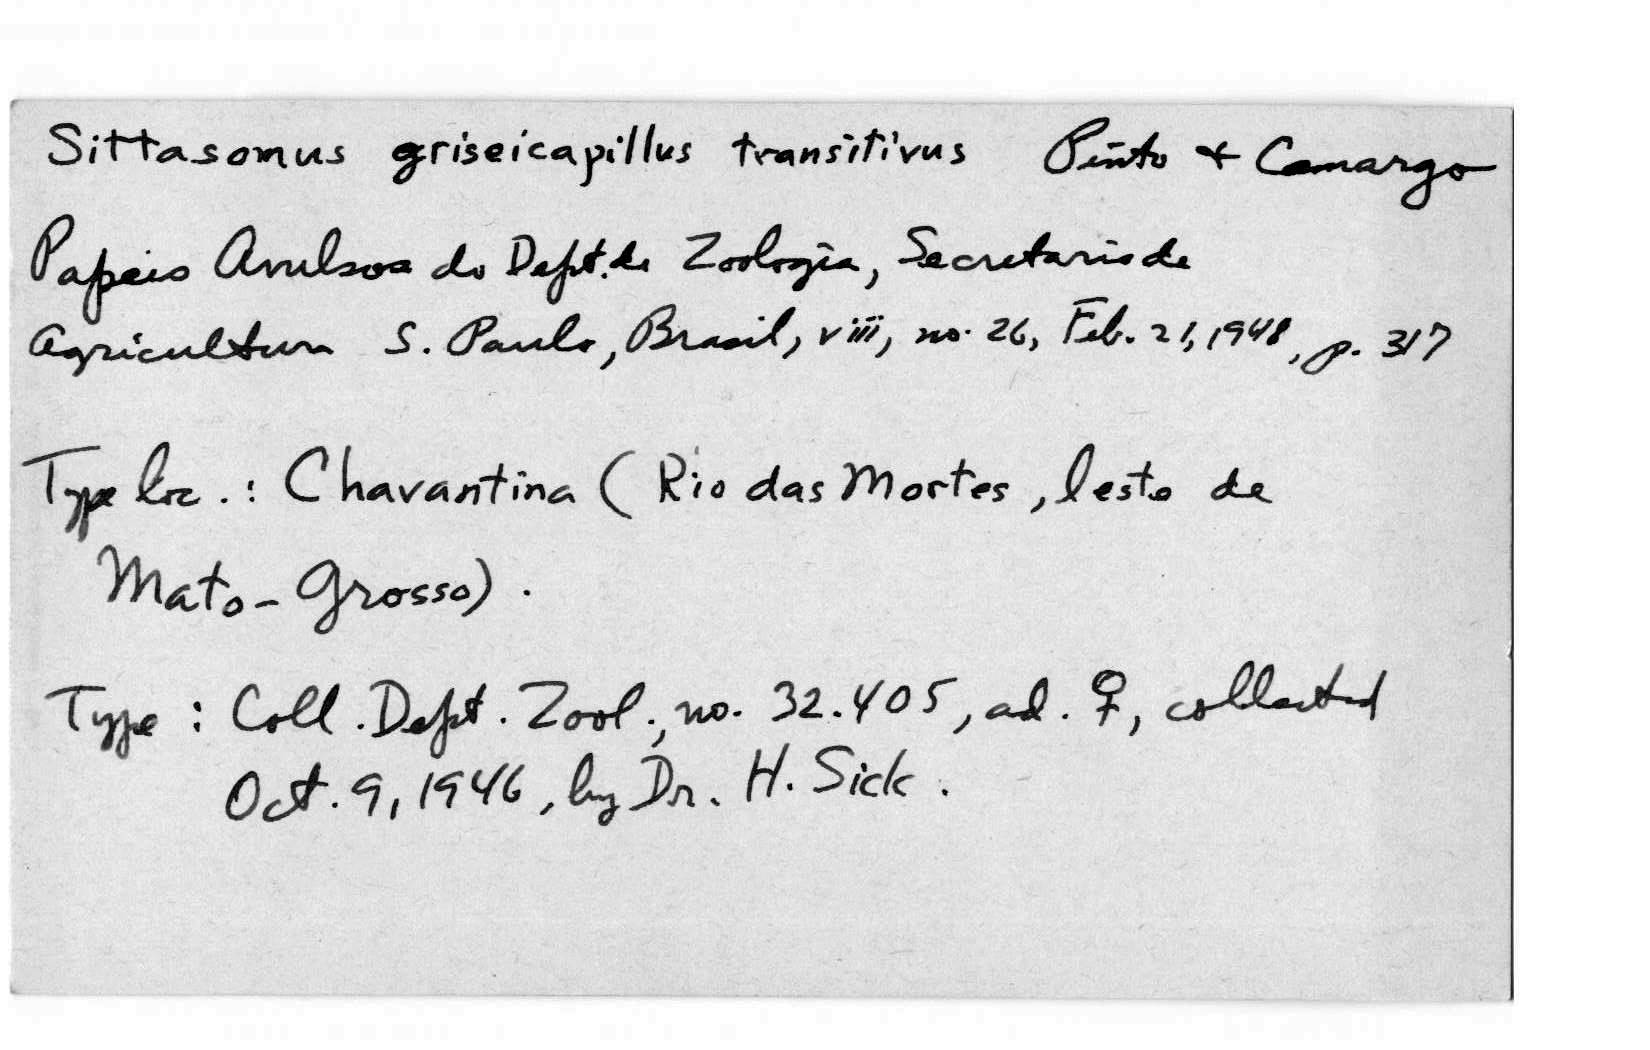 Sittasomus griseicapillus transitivus Pinto + Camargo
Papeis Avulsos do Dept. de Zoologia, Secretaria de
Agricultura S. Paulo, Brasil, viii, no. 26, Feb. 21, 1948, p. 317
Type loc.: Chavantina (Rio das Mortes, leste de
Mato-Grosso).
Type: Coll. Dept. Zool., no. 32.405, ad. ♀, collected
Oct. 9, 1946, by Dr. H. Sick.